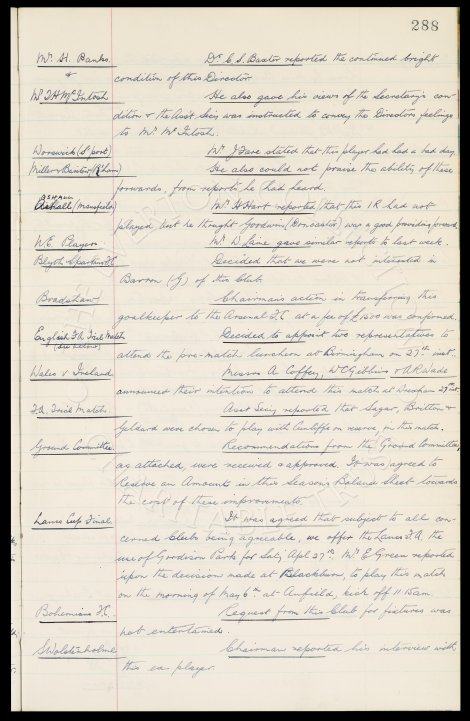 288
Mr. H. Banks Dr. C. S. Baxter reported the continued bright
& condition of this Director
Mr T H McIntosh He also gave his views of the Secretary's con-
dition & the Asst. Secy was instructed to convey the Directors feelings
to Mr. McIntosh.
Worswick (S'port) Mr J Fare stated that this player had had a bad day.
Miller & Baxter (R'ham) He also could not praise the ability of these
forwards, from reports he had heard.
(Mansfield) Mr H Hart reported that this IR had not
played, but he thought Goodwin (Doncaster) was a good providing forward.
N.E. Players Mr D Laine gave similar reports to last week.
Blyth Spartans F.C. Decided that we were not interested in
Barron (G) of this Club.
Bradshaw Chairman's action in transferring this
goalkeeper to the Arsenal F.C. at a fee of £ was confirmed.
English F.A. Trial Match Decided to appoint two representatives to
(see below)
attend the pre-match luncheon at Birmingham on 27th inst.
Wales v Ireland Messrs A Coffey, W C Gibbins & A R Wade
announced their intentions to attend this match at Wrexham 27th inst.
F.A. Trial Match. Asst Secy reported that Sagar, Britton &
Geldard were chosen to play with Cunliffe as reserve, in this match.
Ground Committee Recommendations from the Ground Committee,
as attached, were received & approved. It was agreed to
Reserve an Amount in this Seasons Balance Sheet towards
the cost of these improvements
Lancs Cup Final. It was agreed that subject to all con-
cerned Clubs being agreeable, we offer the Lancs F.A. the
use of Goodison Park for Saty Apl 27th. Mr E Green reported
upon the decision made at Blackburn, to play this match
on the morning of May 6th at Anfield, kick off 11.15am.
Bohemians F.C. Request from this Club for fixtures was
not entertained.
S Wolstenholme Chairman reported his interview with
this ex. player.